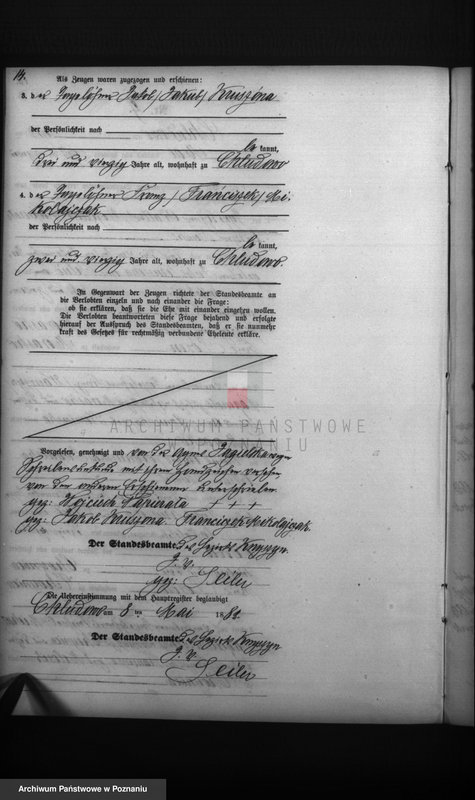 14.
Als Zeugen waren zugezogen und erschienen:
3. der Jakob /Jakub/ Kruszona
der Persönlichkeit nach
be kannt,
drei und vierzig Jahre alt, wohnhaft zu Chludowo
4. der Franz /Franciszek/ Mi-
kołajczak
der Persönlichkeit nach
be kannt,
zwei und vierzig Jahre alt, wohnhaft zu Chludowo.
In Gegenwart der Zeugen richtete der Standesbeamte an
die Verlobten einzeln und nach einander die Frage:
ob sie erklären, daß sie die Ehe mit einander eingehen wollen.
Die Verlobten beantworteten diese Frage bejahend und erfolgte
hierauf der Ausspruch des Standesbeamten, daß er sie nunmehr
kraft des Gesetzes für rechtmäßig verbundene Eheleute erkläre.
ARCHIWUM PAŃSTWOWE
W POZNANIU
Vorgelesen, genehmigt und von der wegen
mit ihrem Handzeichen versehen,
von den anderen Erschienenen unterschrieben
gez: Wojciech + + +
gez: Jakob Kruszona Franciszek Mikołajczak.
Der Standesbeamte. des Bezirks
J. V.
gez: Seiler
Die Uebereinstimmung mit dem Hauptregister beglaubigt
Chludowo am 8 ten Mai 18
Der Standesbeamte. des Bezirks
J. V.
Seiler
Archiwum Państwowe w Poznaniu